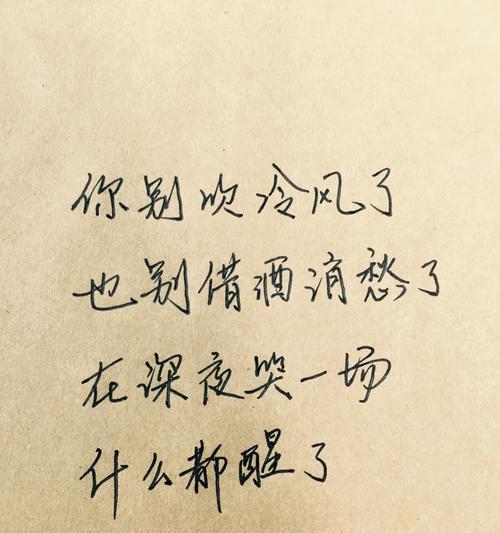 你别吹冷风了
也别借酒消愁了
在深夜哭一场
什么都醒了